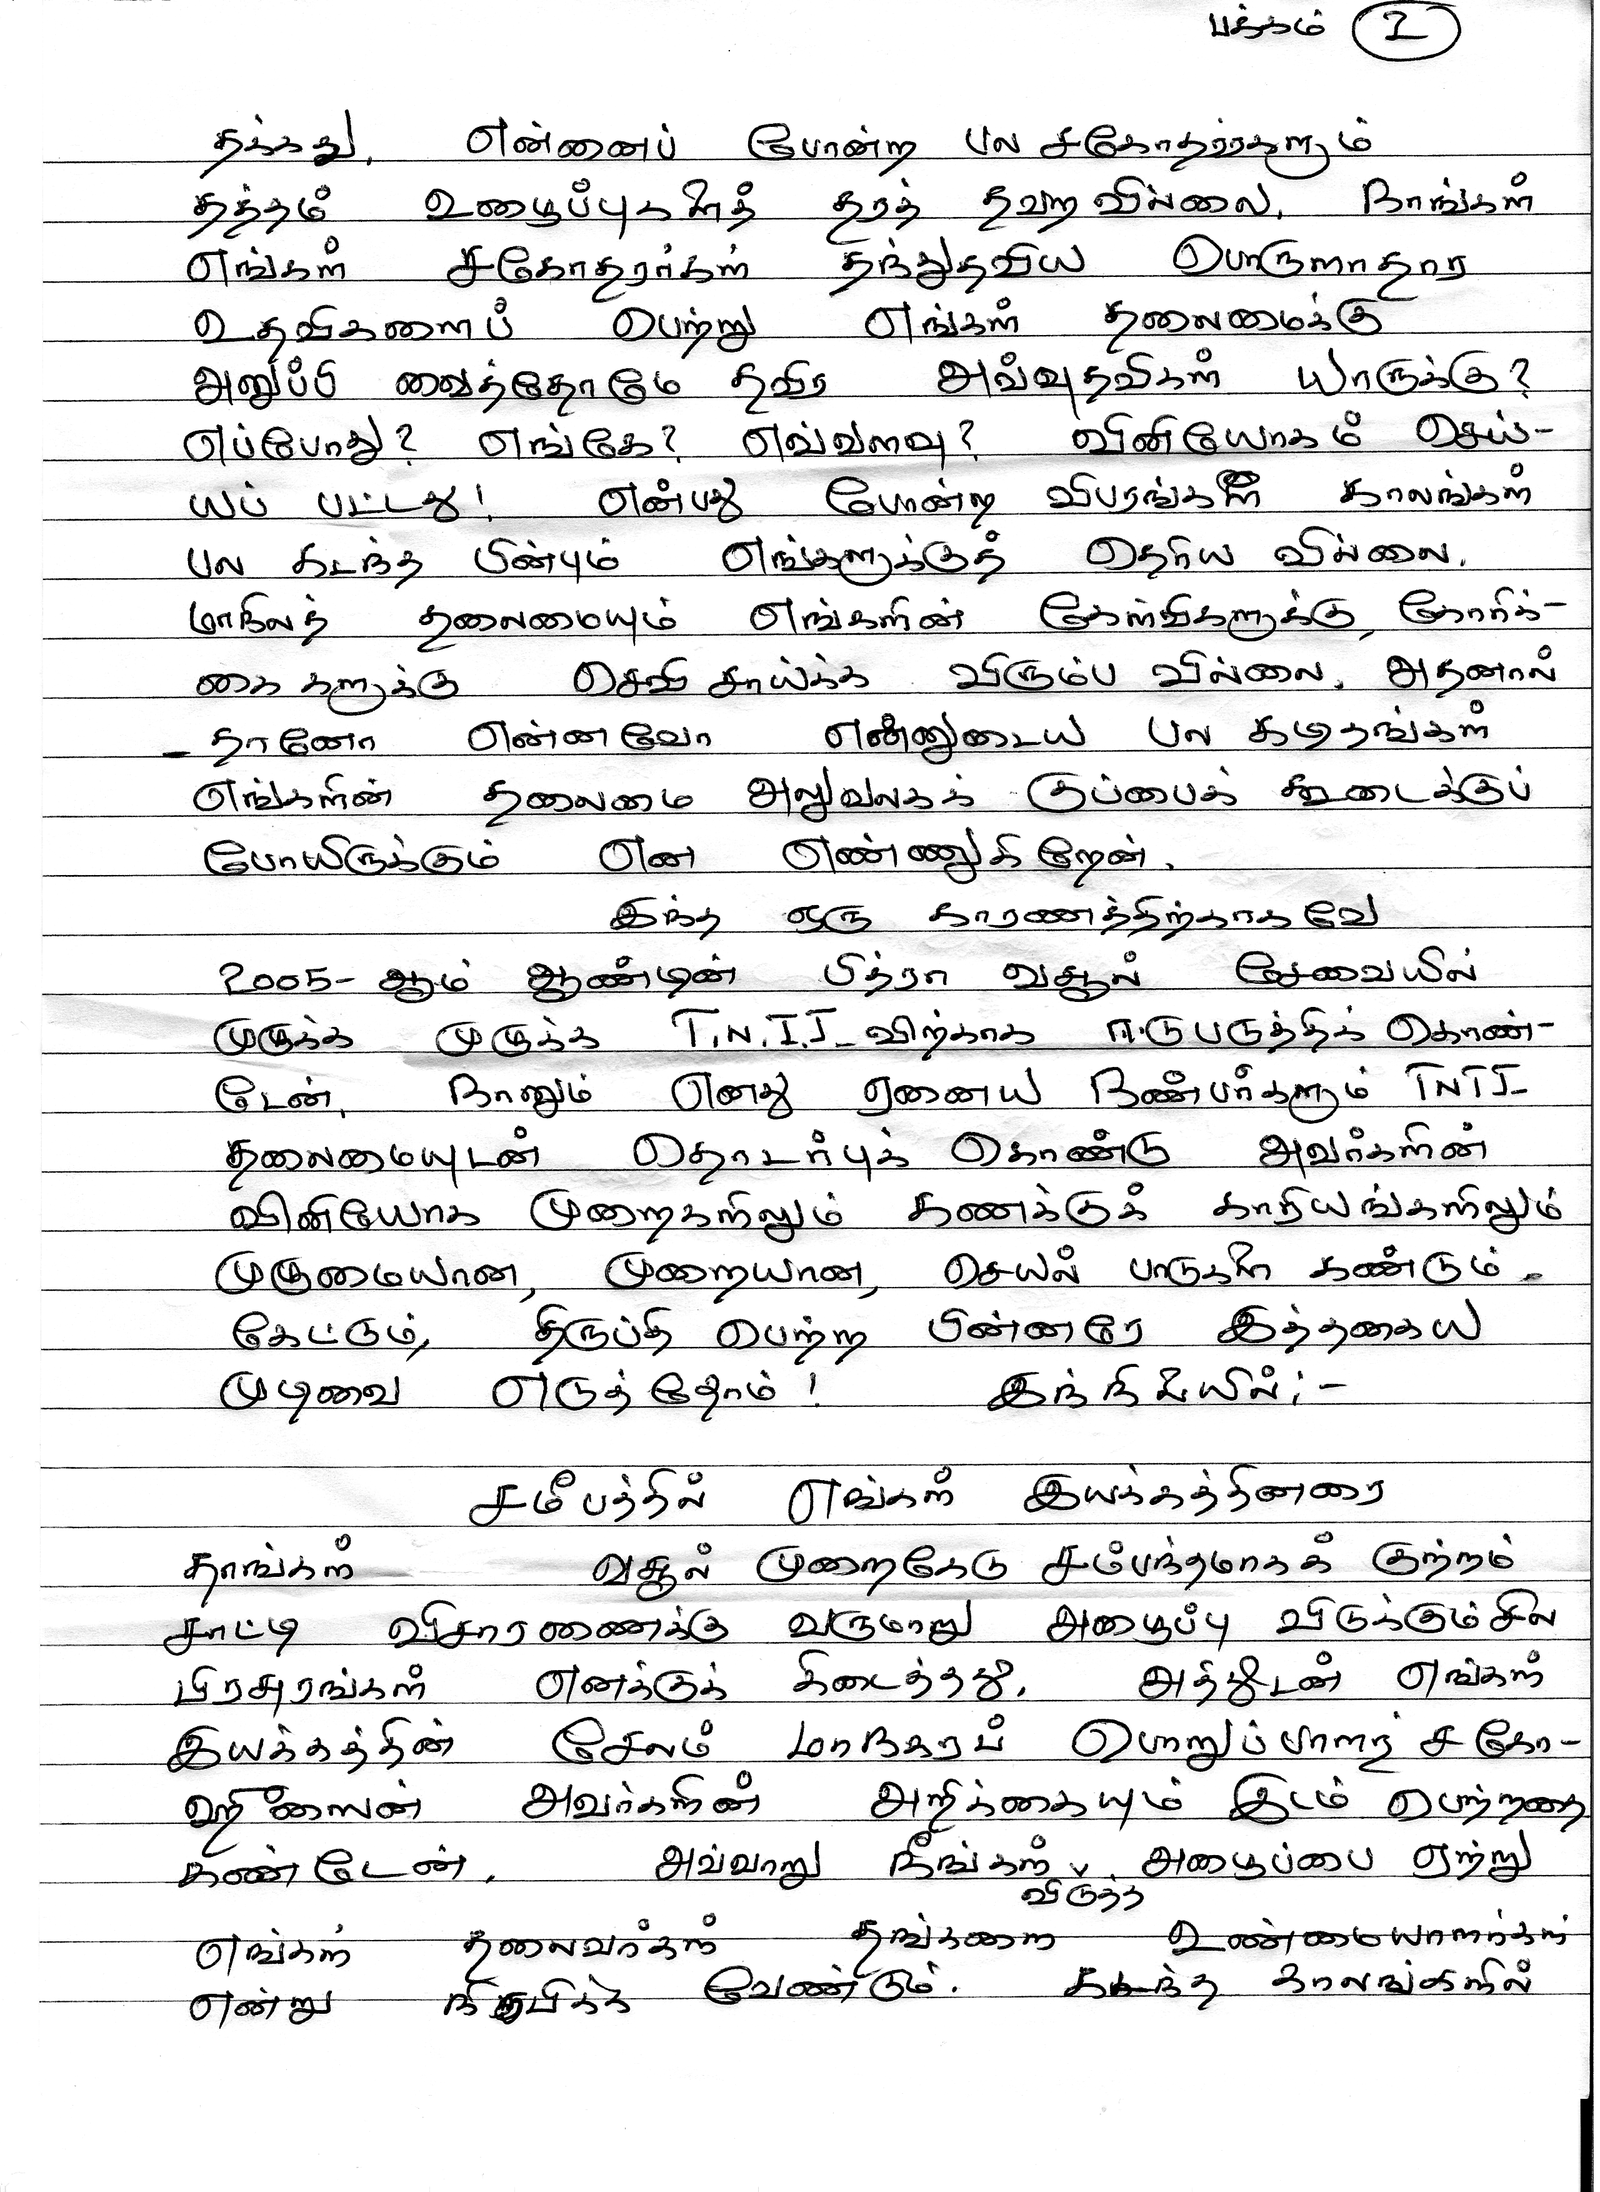 பக்கம் 2
தக்கது. என்னைப் போன்ற பல சகோதரர்களும்
தத்தம் உழைப்புகளைத் தரத் தவறவில்லை. நாங்கள்
எங்கள் சகோதரர்கள் தந்துதவிய பொருளாதார
உதவிகளைப் பெற்று எங்கள் தலைமைக்கு
அனுப்பி வைத்தோமே தவிர அவ்வுதவிகள் யாருக்கு?
எப்போது? எங்கே? எவ்வளவு? வினியோகம் செய்-
யப் பட்டது! என்பது போன்ற விபரங்கள் காலங்கள்
பல கடந்த பின்பும் எங்களுக்குத் தெரிய வில்லை.
மாநிலத் தலைமையும் எங்களின் கேள்விகளுக்கு, கோரிக்-
கைகளுக்கு செவி சாய்க்க விரும்ப வில்லை. அதனால்
- தானோ என்னவோ என்னுடைய பல கடிதங்கள்
எங்களின் தலைமை அலுவலகக் குப்பைக் கூடைக்குப்
போயிருக்கும் என எண்ணுகிறேன்.
இந்த ஒரு காரணத்திற்காகவே
2005-ஆம் ஆண்டின் பித்ரா வசூல் சேவையில்
முழுக்க முழுக்க T.N.T.J-விற்காக ஈடுபடுத்திக் கொண்-
டேன். நானும் எனது ஏனைய நண்பர்களும் TNTJ-
தலைமையுடன் தொடர்புக் கொண்டு அவர்களின்
வினியோக முறைகளிலும் கணக்குக் காரியங்களிலும்
முழுமையான, முறையான, செயல் பாடுகளை கண்டும்.
கேட்டும், திருப்தி பெற்ற பின்னரே இத்தகைய
முடிவை எடுத்தோம்! இந்நிலையில்;-
சமீபத்தில் எங்கள் இயக்கத்தினரை
தாங்கள் வசூல் முறைகேடு சம்பந்தமாகக் குற்றம்
சாட்டி விசாரணைக்கு வருமாறு அழைப்பு விடுக்கும் சில
பிரசுரங்கள் எனக்குக் கிடைத்தது. அத்துடன் எங்கள்
இயக்கத்தின் சேலம் மாநகரப் பொறுப்பாளர் சகோ-
ஹுஸைன் அவர்களின் அறிக்கையும் இடம் பெற்றதை
கண்டேன். அவ்வாறு நீங்கள் விடுத்த அழைப்பை ஏற்று
எங்கள் தலைவர்கள் தங்களை உண்மையாளர்கள்
என்று நிரூபிக்க வேண்டும். கடந்த காலங்களில்